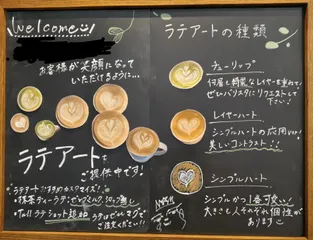 Welcome
お客様が笑顔になって
いただけるように...
ラテアートを
ご提供中です!
ラテアートおすすめカスタマイズ!
・抹茶ティーラテ・ゼロミルク シロップ無し
・Tall ラテ ショット追加
ラテはぜひマグで
ご注文ください!!
ラテアートの種類
チューリップ
何層も綺麗なレイヤーを重ねて!
ぜひバリスタにリクエストして
下さい!
レイヤーハート
シンプルハートの応用ver!
美しいコントラスト!!
シンプルハート
シンプルかつ1番可愛い!
大きさも人それぞれ個性が
あります